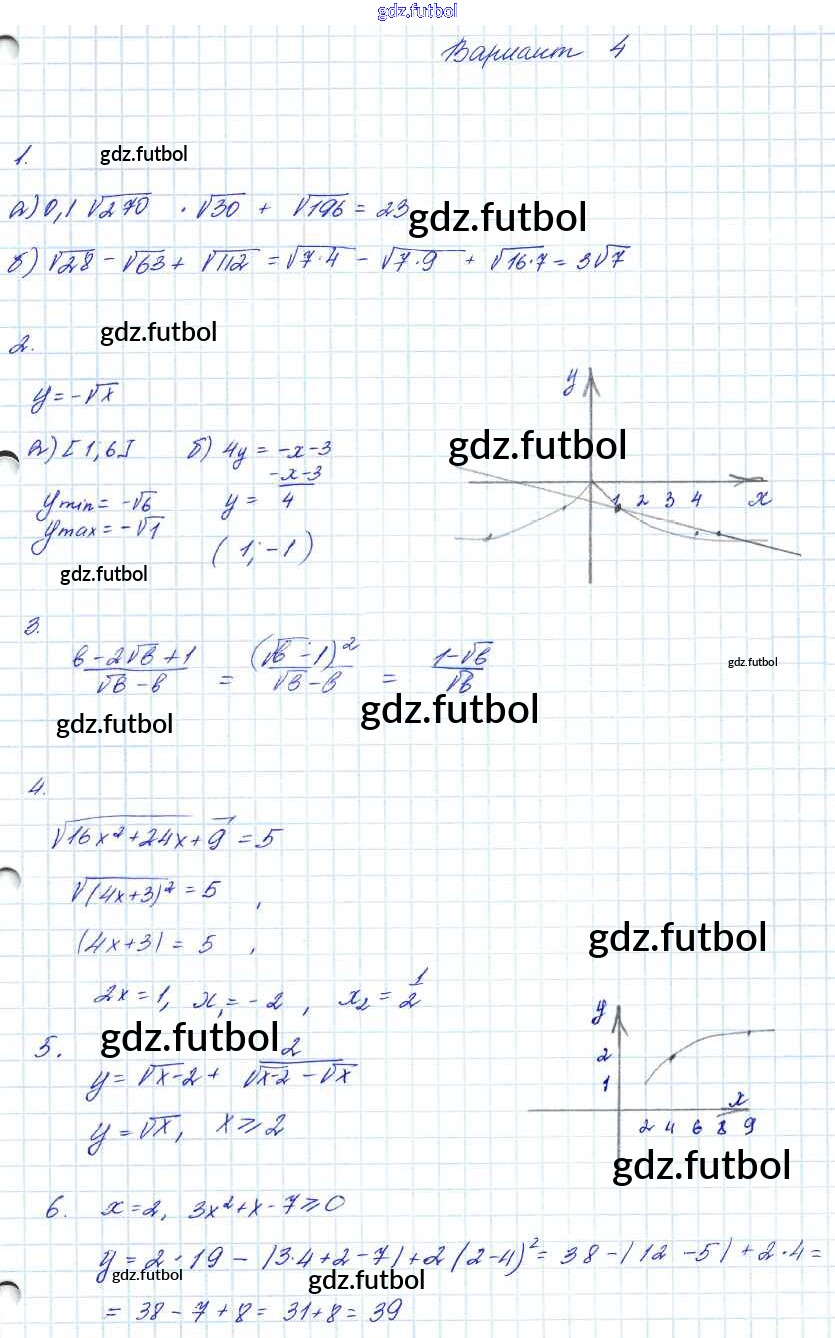 gdz.futbol
Вариант 4
1.
gdz.futbol
а) 0,1 √270 · √30 + √196 = 23
gdz.futbol
б) √28 - √63 + √112 = √7·4 - √7·9 + √16·7 = 3√7
2.
gdz.futbol
y = -√x
y
gdz.futbol
а) [1;6] б) 4y = -x-3
y = -x-3/4
1 2 3 4 x
y min = -√6
y max = -√1
(1; -1)
gdz.futbol
3.
b-2√b+1/√b-b = (√b-1)²/√b-b = 1-√b/√b
gdz.futbol
gdz.futbol
gdz.futbol
4.
√16x²+24x+9 = 5
√(4x+3)² = 5 ,
(4x+3) = 5 ,
gdz.futbol
2x = 1, x₁ = -2 , x₂ = 1/2
5.
gdz.futbol
y = √x-2 + 2/√x-2 - √x
y = √x, x ⩾ 2
y
2
1
x
2 4 6 8 9
gdz.futbol
6. x = 2, 3x²+x-7 ⩾ 0
y = 2·19 - |3·4+2-7| + 2(2-4)² = 38-|12-5| + 2·4 =
gdz.futbol
gdz.futbol
= 38-7+8 = 31+8 = 39